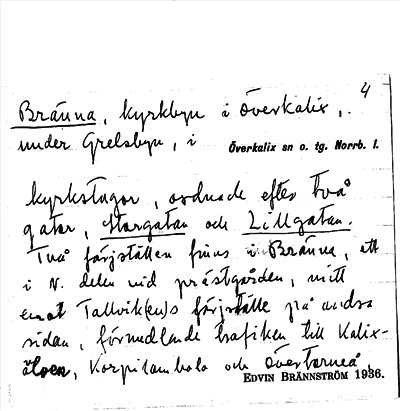 4
Bränna, kyrkbyn i Överkalix,.
under Grelsbyn, i
Överkalix sn o. tg. Norrb. l.
kyrkstugor, ordnade efter två
gator, Storgatan och Lillgatan.
Två färjställen finns i Bränna, ett
i N. delen vid prästgården, mitt
emot Tallvik(en)s färjställe på andra
sidan, förmedlande trafiken till Kalix-
älven, Korpilombolo och Övertorneå,
EDVIN BRÄNNSTRÖM 1936.